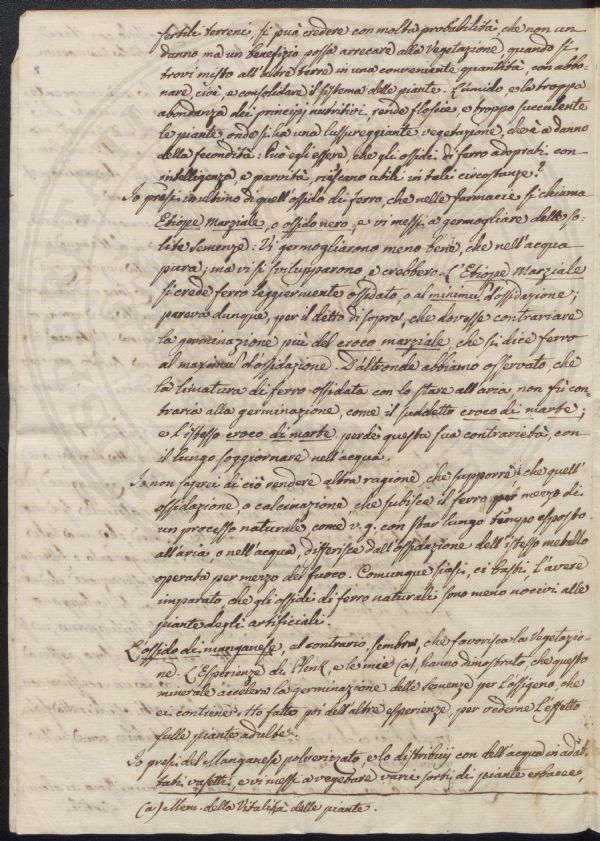 fertili terreni, si può credere con molta probabilità, che non un
danno, ma un benefizio possa arrecare alla Vegetazione, quando si
trovi misto all'altre terre in una conveniente quantità, con abbo-
nare, cioè, e consolidare il sistema delle piante. L'umido, e la troppa
abondanza dei principj nutritivi, rende floscie, e troppo succulente
le piante, onde si ha una lussureggiante vegetazione, che è a danno
della fecondità: Può egli essere, che gli ossidi di ferro adoprati con
intelligenza, e parvità, riescano utili in tali circostanze?
Io presi in ultimo di quell'ossido di ferro, che nelle farmacie si chiama
Etiope Marziale, o ossido nero, e vi messi a germogliare delle so-
lite Semenze: Vi germogliarono meno bene, che nell'acqua
pura; ma vi si svilupparono, e crebbero. L'Etiope Marziale
si crede ferro leggiermente ossidato, o al minimũ d'ossidazione;
pareva dunque, per il detto di sopra, che dovesse contrariare
la germinazione più del croco marziale, che si dice ferro
al maximũ d'ossidazione. D'altronde abbiamo osservato, che
la limatura di ferro ossidata con lo stare all'aria non fù con-
traria alla germinazione, come il suddetto croco di marte;
e l'istesso croco di marte perdè questa sua contrarietà, con
il lungo soggiornare nell'acqua.
Io non saprei di ciò rendere altra ragione, che supporre, che quell'
ossidazione, o calcinazione, che subisce il ferro per mezzo di
un processo naturale, come v. g. con star lungo tempo esposto
all'aria, o nell'acqua, differisce dall'ossidazione dell'istesso metallo
operata per mezzo del fuoco. Comunque siasi, ci basti, l'avere
imparato, che gli ossidi di ferro naturali sono meno nocivi alle
piante degli artificiali.
L'ossido di manganese, al contrario sembra, che favorisca la Vegetazio-
ne. L'Esperienze di Plenk, e le mie (a), hanno dimostrato, che questo
minerale accelera la germinazione delle Semenze per l'ossigeno, che
ei contiene: Ho fatto poi dell'altre esperienze, per vederne l'effetto
sulle piante adulte.
Io presi del Manganese polverizzato, e lo distribuij con dell'acqua in adat-
tati vasetti, e vi messi a vegetare varie sorti di piante erbacee,
(a) Mem. della Vitalità delle piante.